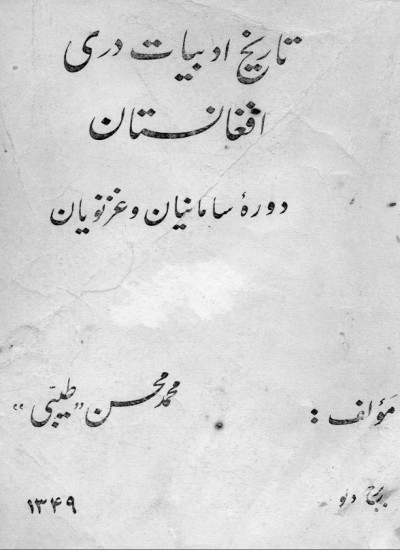 تاریخ ادبیات دری
افغانستان
دورهٔ سامانیان و غزنویان
مؤلف : محمد محسن «طیبی»
برج دلو ۱۳۴۹